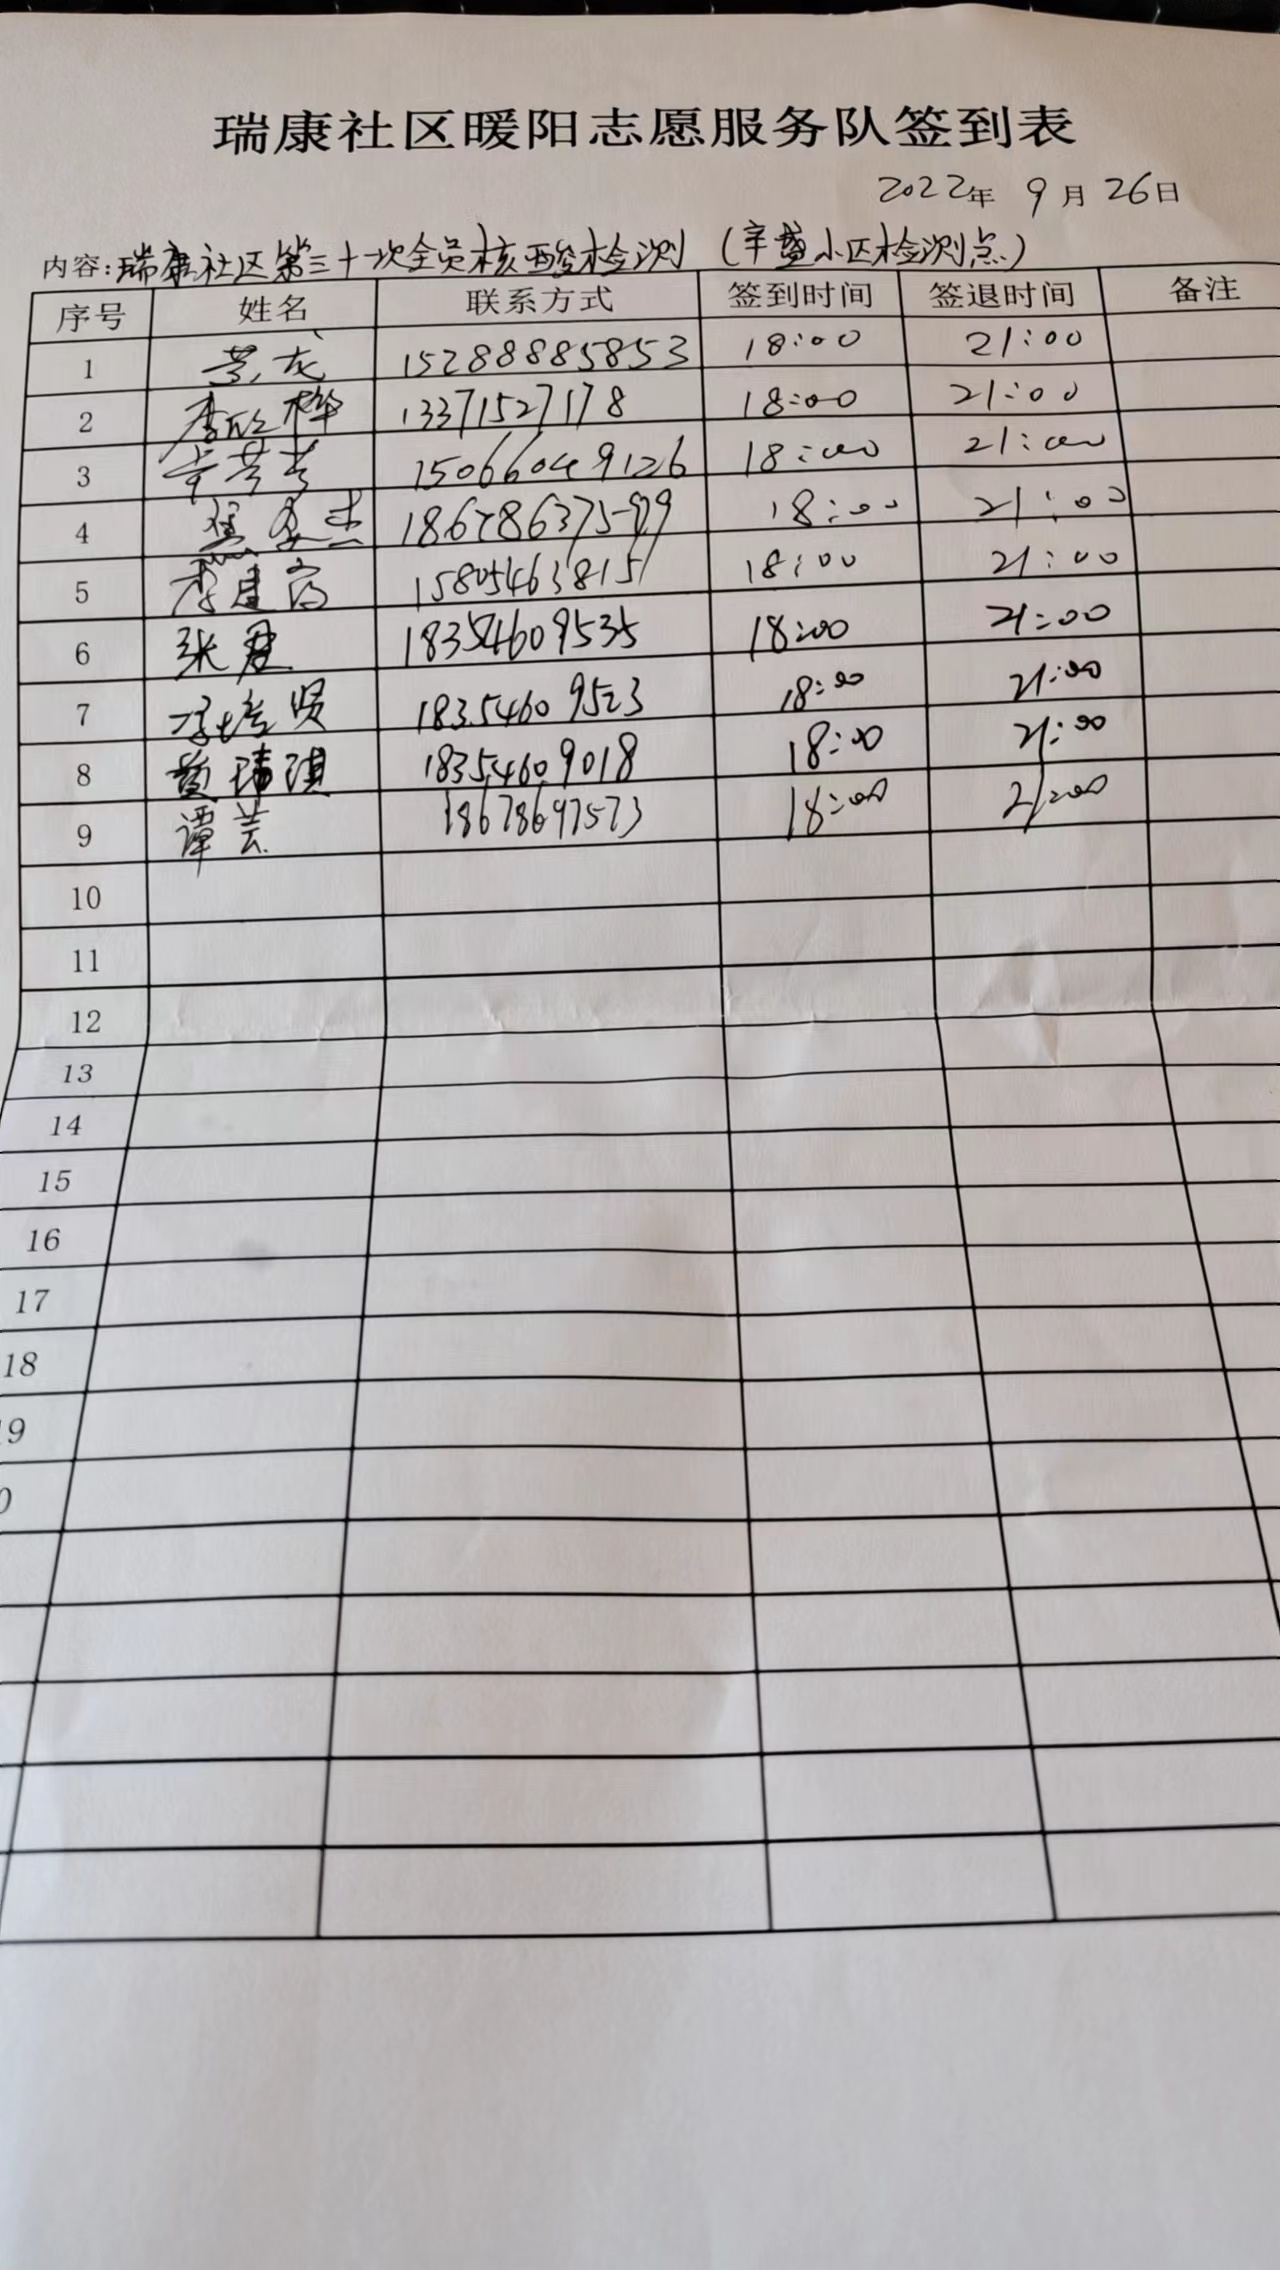 瑞康社区暖阳志愿服务队签到表
2022年 9月 26日
内容:瑞康社区第三十次全员核酸检测(辛盛小区检测点)
序号 姓名 联系方式 签到时间 签退时间 备注
1 15288885853 18:00 21:00
2 李欣桦 13371527178 18:00 21:00
3 15066049126 18:00 21:00
4 18:00 21:00
5 15805463815 18:00 21:00
6 张君 18354609535 18:00 21:00
7 李培贤 18354609523 18:00 21:00
8 黄瑞琪 18354609018 18:00 21:00
9 谭芸 18678697573 18:00 21:00
10
11
12
13
14
15
16
17
18
19
0